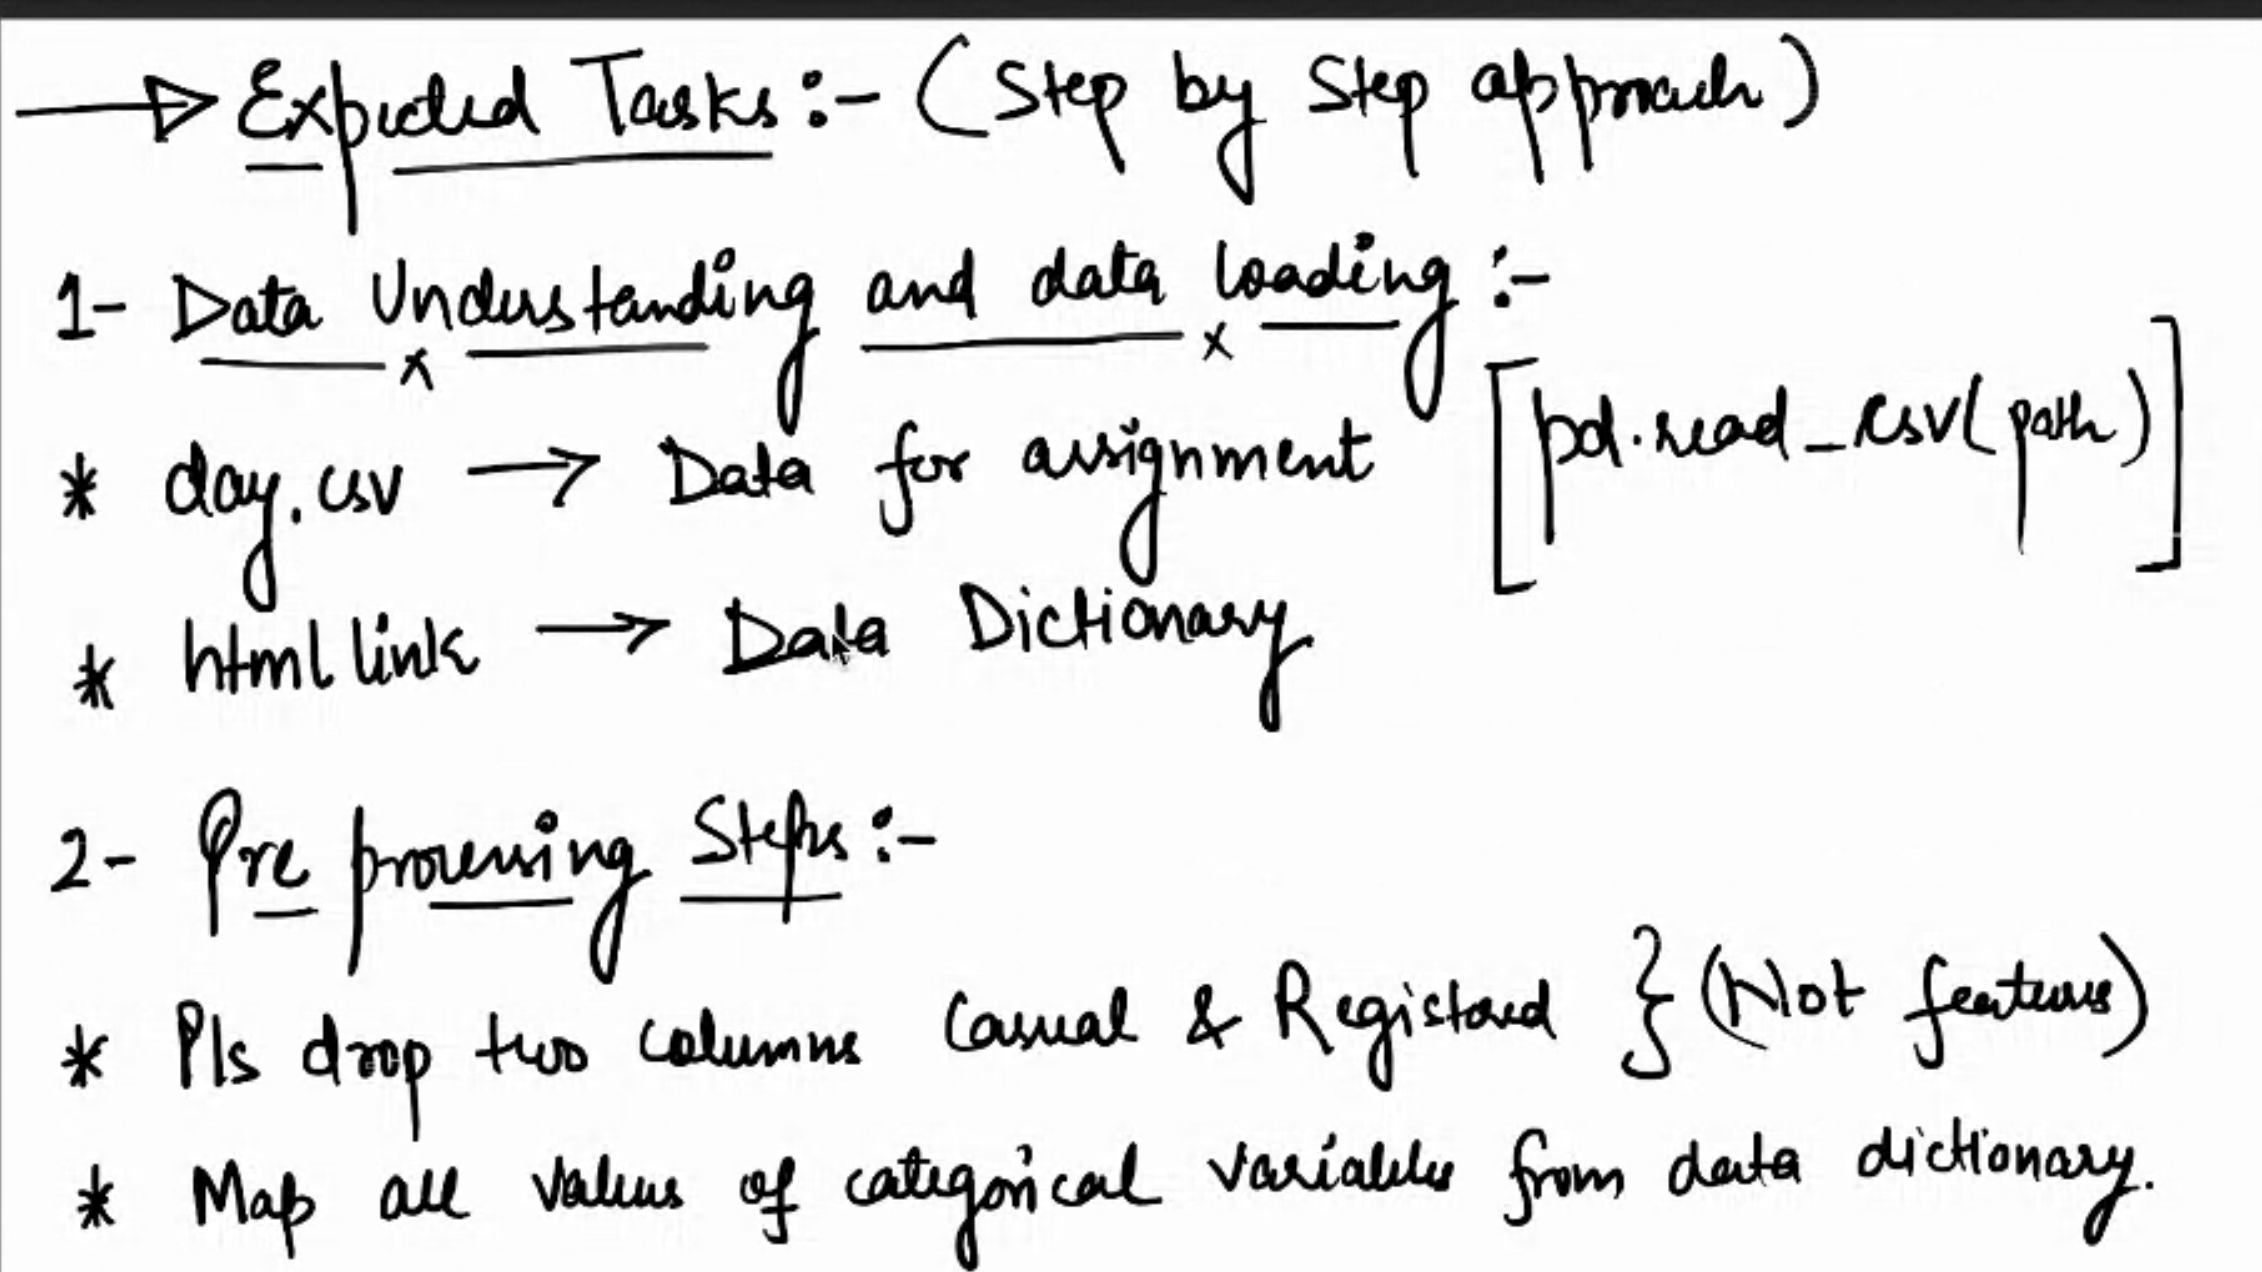 → Expected Tasks:- (Step by Step approach)
1- Data Understanding and data loading :-
* day.csv → Data for assignment [pd.read_csv(path)]
* html link → Data Dictionary
2- Pre processing Steps:-
* Pls drop two columns Casual & Registered } (Not features)
* Map all values of categorical variables from data dictionary.